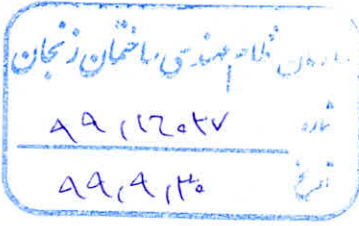 سازمان نظام مهندسی ساختمان زنجان
شماره
تاریخ ۹۹,۹,۳۰